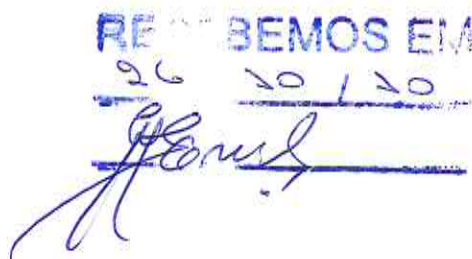 RE  BEMOS EM
26 10 / 10